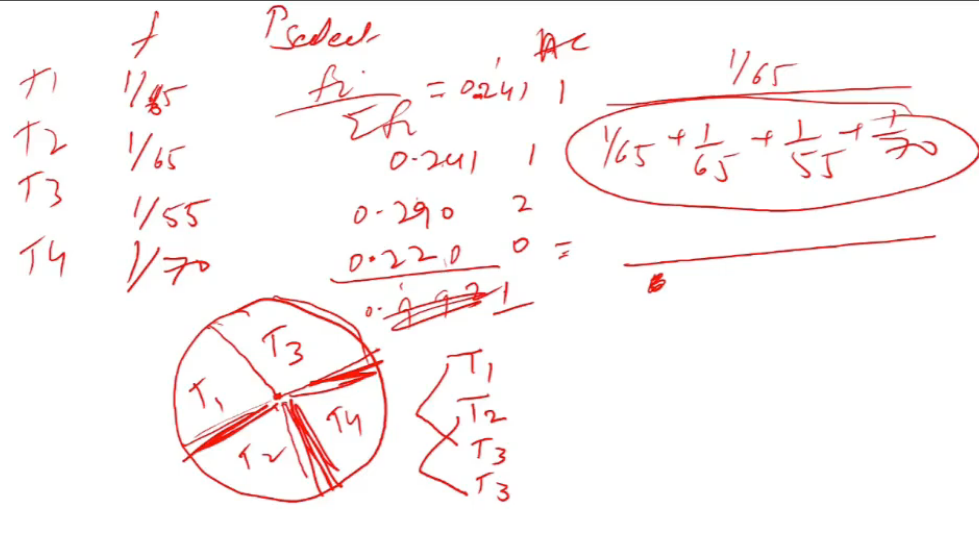 f Pselect AC
T1 1/65 fi/Σfi = 0.241 1
T2 1/65 0.241 1
T3 1/55 0.290 2
T4 1/70 0.220 0 =
1
1/65
1/65 + 1/65 + 1/55 + 1/70
T3
T1
T2
T4
T1
T2
T3
T3